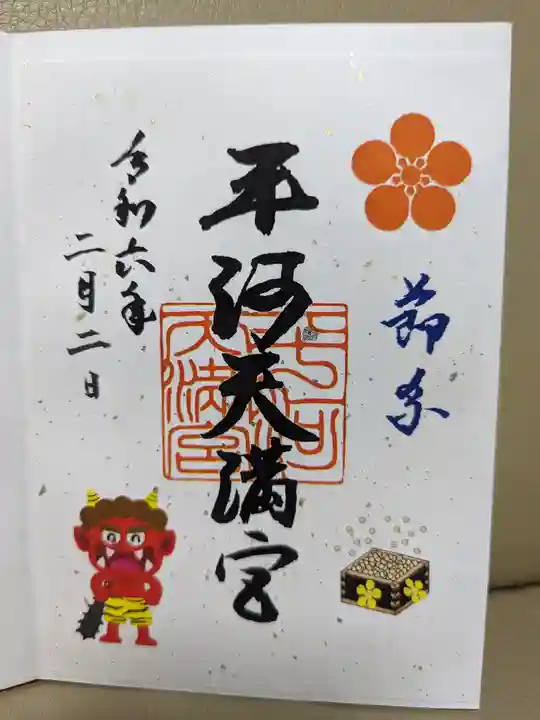 節分
平河天満宮
平河
天満宮
令和六年
二月二日